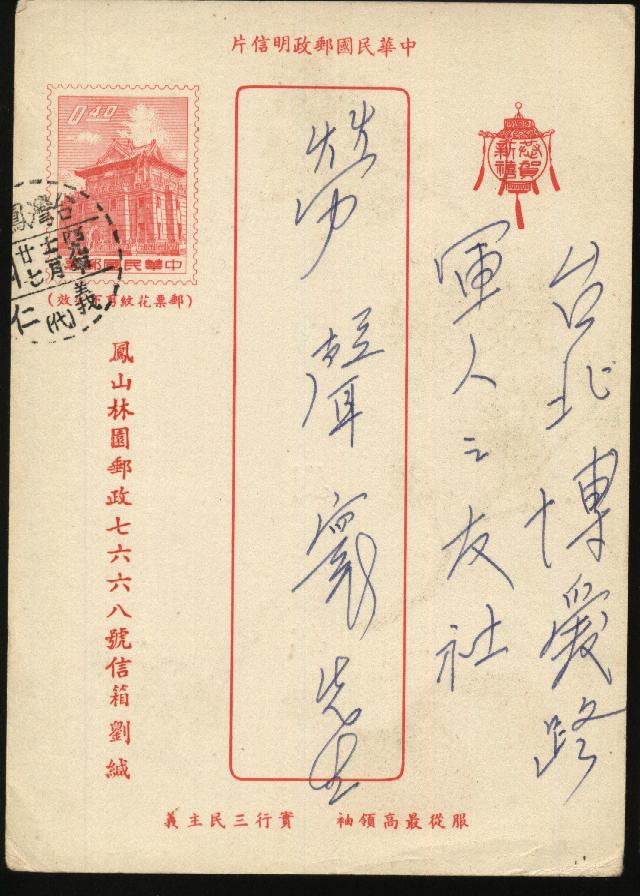 中華民國郵政明信片
恭賀新禧
台北博愛路
軍人之友社
勞聲寰先生
0.40
中華民國郵票
(郵票花紋剪下無效)
台灣鳳
七月
廿七
義
仁
(代)
鳳山林園郵政七六六八號信箱劉緘
服從最高領袖 實行三民主義